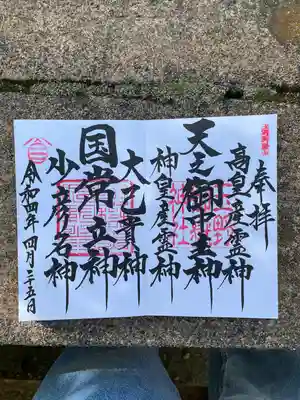 奉拝
高皇産霊神
天之御中主神
神皇産霊神
大己貴神
国常立神
少彦名神
令和四年 四月二十五日